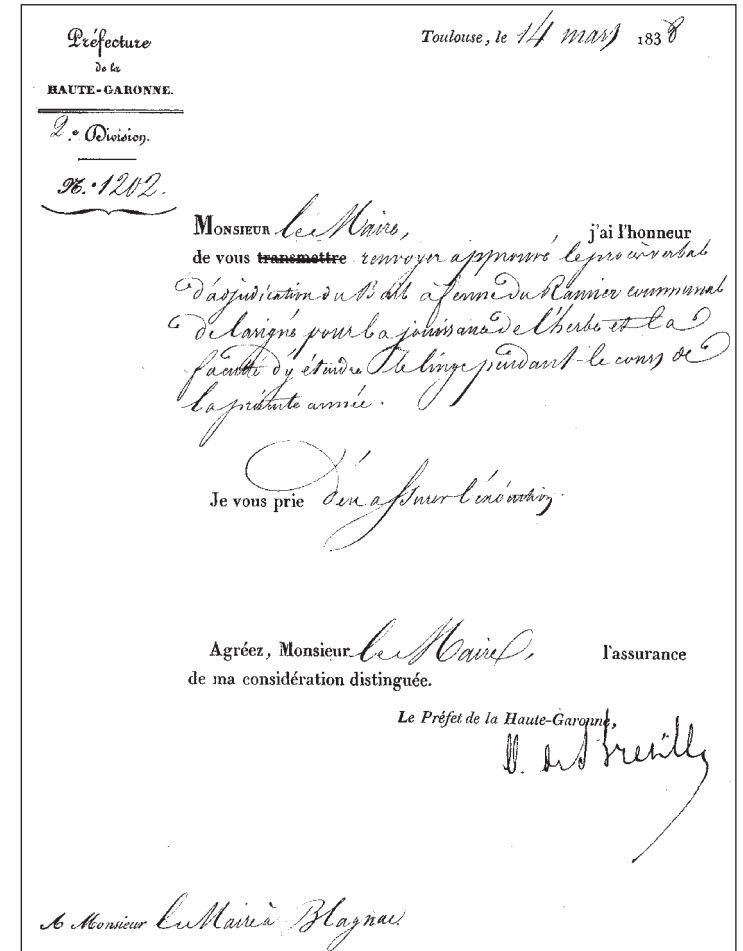 Préfecture
de la
HAUTE-GARONNE.
2.e Division.
N.o 1202.
Toulouse, le 14 mars 1838
MONSIEUR le Maire, j'ai l'honneur
de vous transmettre renvoyer approuvé le procès verbal
d'adjudication du Bail a ferme du Ramier communal
de lavigné pour la jouissance de l'herbe et la
faculté d'y étendre le linge pendant le cours de
la présente année.
Je vous prie d'en assurer l'exécution.
Agréez, Monsieur le Maire, l'assurance
de ma considération distinguée.
Le Préfet de la Haute-Garonne,
A Monsieur le Maire à Blagnac